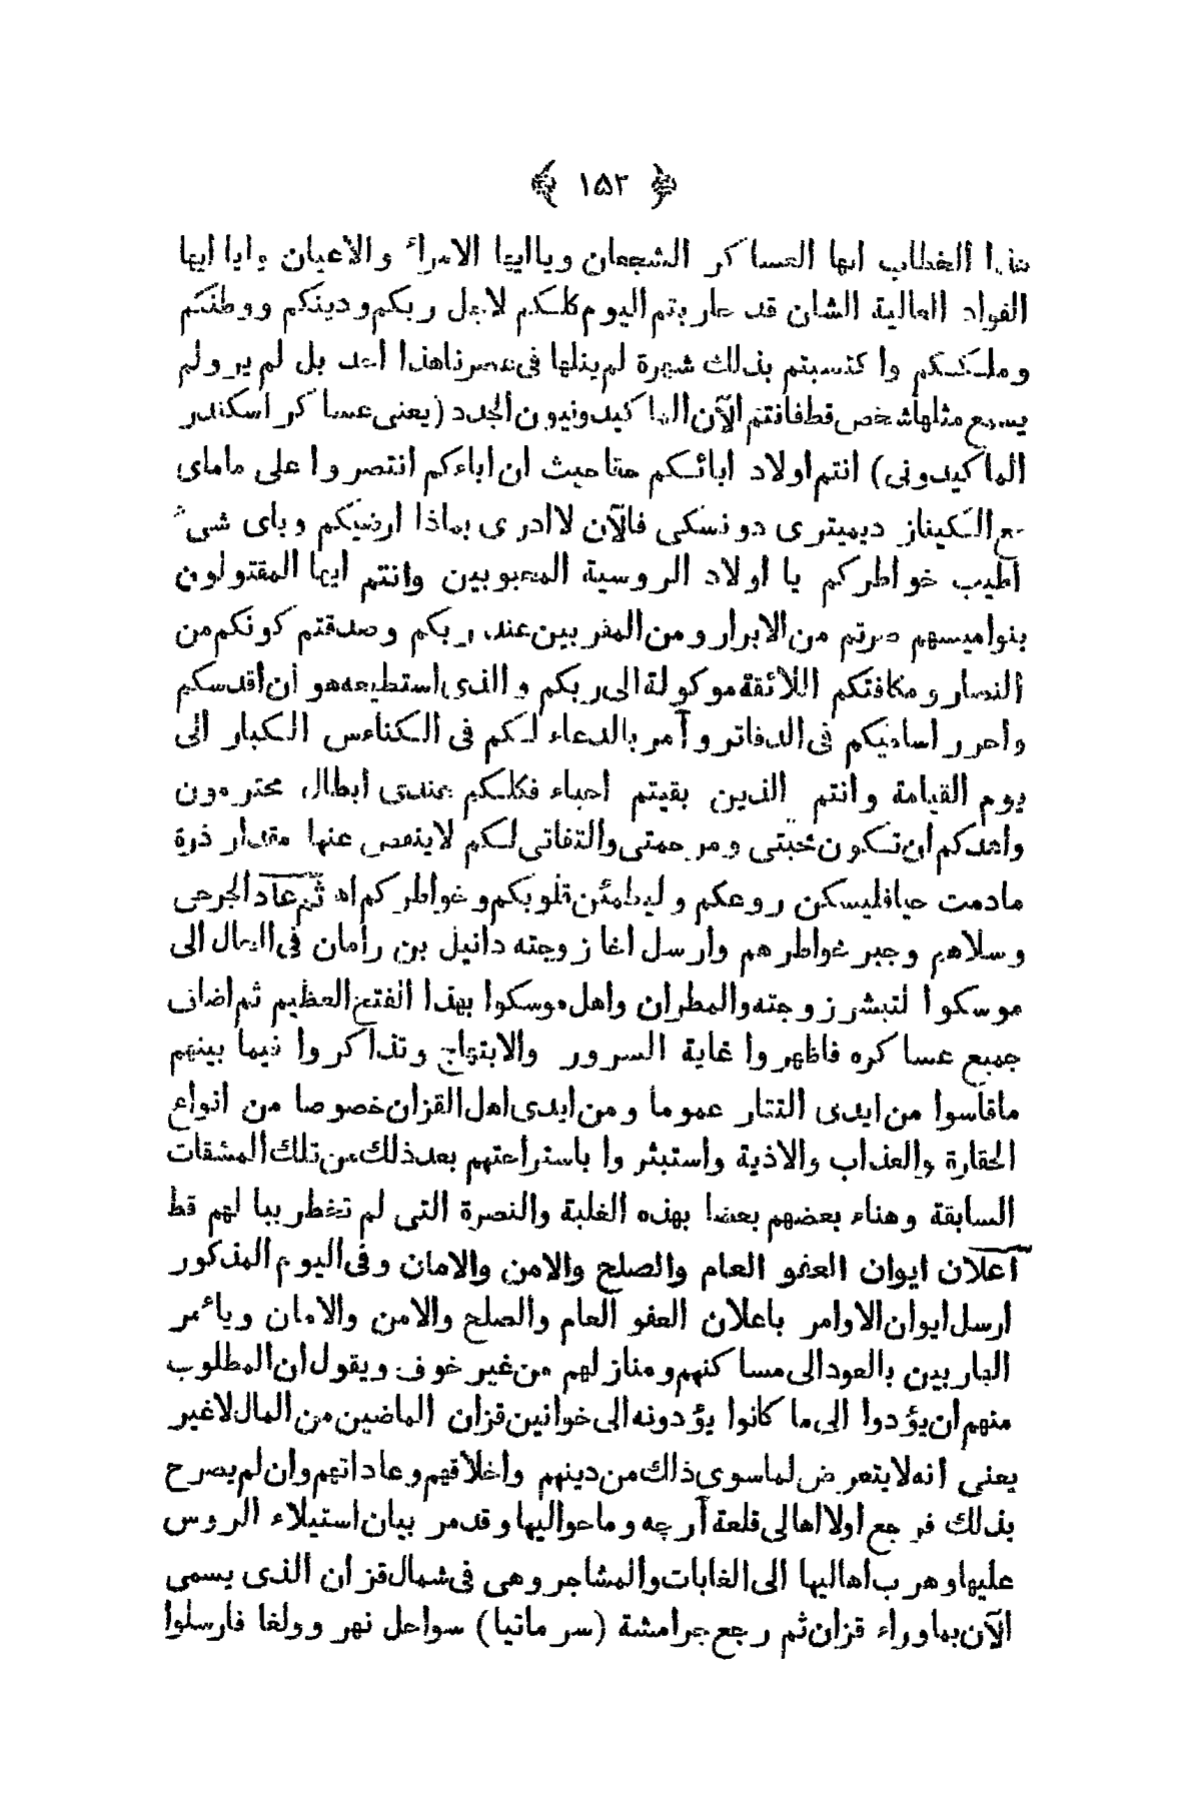 ﴿ ١٥٢ ﴾
هذا الخطاب ايها العساكر الشجعان وياايها الامراء والاعيان ويا ايها
القواد العالية الشان قد حاربتم اليوم كلكم لاجل ربكم ودينكم ووطنكم
وملككم واكتسبتم بذلك شهرة لم ينلها فى عصرنا هذا احد بل لم ير ولم
يسمع مثلها شخص قط فانتم الآن الماكيدونيون الجدد (يعنى عساكر اسكندر
الماكيدونى) انتم اولاد ابائكم حقا حيث ان اباءكم انتصروا على ماماى
مع الكيناز ديميترى دونسكى فالآن لا ادرى بماذا ارضيكم وباى شىء
اطيب خواطركم يا اولاد الروسية المحبوبين وانتم ايها المقتولون
بنواميسهم صرتم من الابرار ومن المقربين عند ربكم وصدقتم كونكم من
النصار ومكافتكم اللائقة موكولة الى ربكم والذى استطيعه هو ان اقدسكم
واحرر اساميكم فى الدفاتر وآمر بالدعاء لكم فى الكناءس الكبار الى
يوم القيامة وانتم الذين بقيتم احياء فكلكم عندى ابطال محترمون
واعدكم ان تكون محبتى ومرحمتى والتفاتى لكم لا ينقص عنها مقدار ذرة
مادمت حيا فليسكن روعكم وليطمئن قلوبكم وخواطركم اه ثم عاد الجرحى
وسلاهم وجبر خواطرهم وارسل اخا زوجته دانيل بن رامان فى الحال الى
موسكوا لتبشر زوجته والمطران واهل موسكوا بهذا الفتح العظيم ثم اضاف
جميع عساكره فاظهروا غاية السرور والابتهاج وتذاكروا فيما بينهم
ماقاسوا من ايدى التتار عموما ومن ايدى اهل القزان خصوصا من انواع
الحقارة والعذاب والاذية واستبشروا باستراحتهم بعد ذلك من تلك المشقات
السابقة وهناء بعضهم بعضا بهذه الغلبة والنصرة التى لم تخطر ببا لهم قط
اعلان ايوان العفو العام والصلح والامن والامان وفى اليوم المذكور
ارسل ايوان الاوامر باعلان العفو العام والصلح والامن والامان وياءمر
الهاربين بالعود الى مساكنهم ومنازلهم من غير خوف ويقول ان المطلوب
منهم ان يؤدوا الى ما كانوا يؤدونه الى خوانين قزان الماضين من المال لاغير
يعنى انه لايتعرض لماسوى ذلك من دينهم واخلاقهم وعاداتهم وان لم يصرح
بذلك فرجع اولا اهالى قلعة آرچه وماحواليها وقدمر بيان استيلاء الروس
عليها وهرب اهاليها الى الغابات والمشاجر وهى فى شمال قزان الذى يسمى
الآن بما وراء قزان ثم رجع جرامشة (سرماتيا) سواحل نهر وولغا فارسلوا